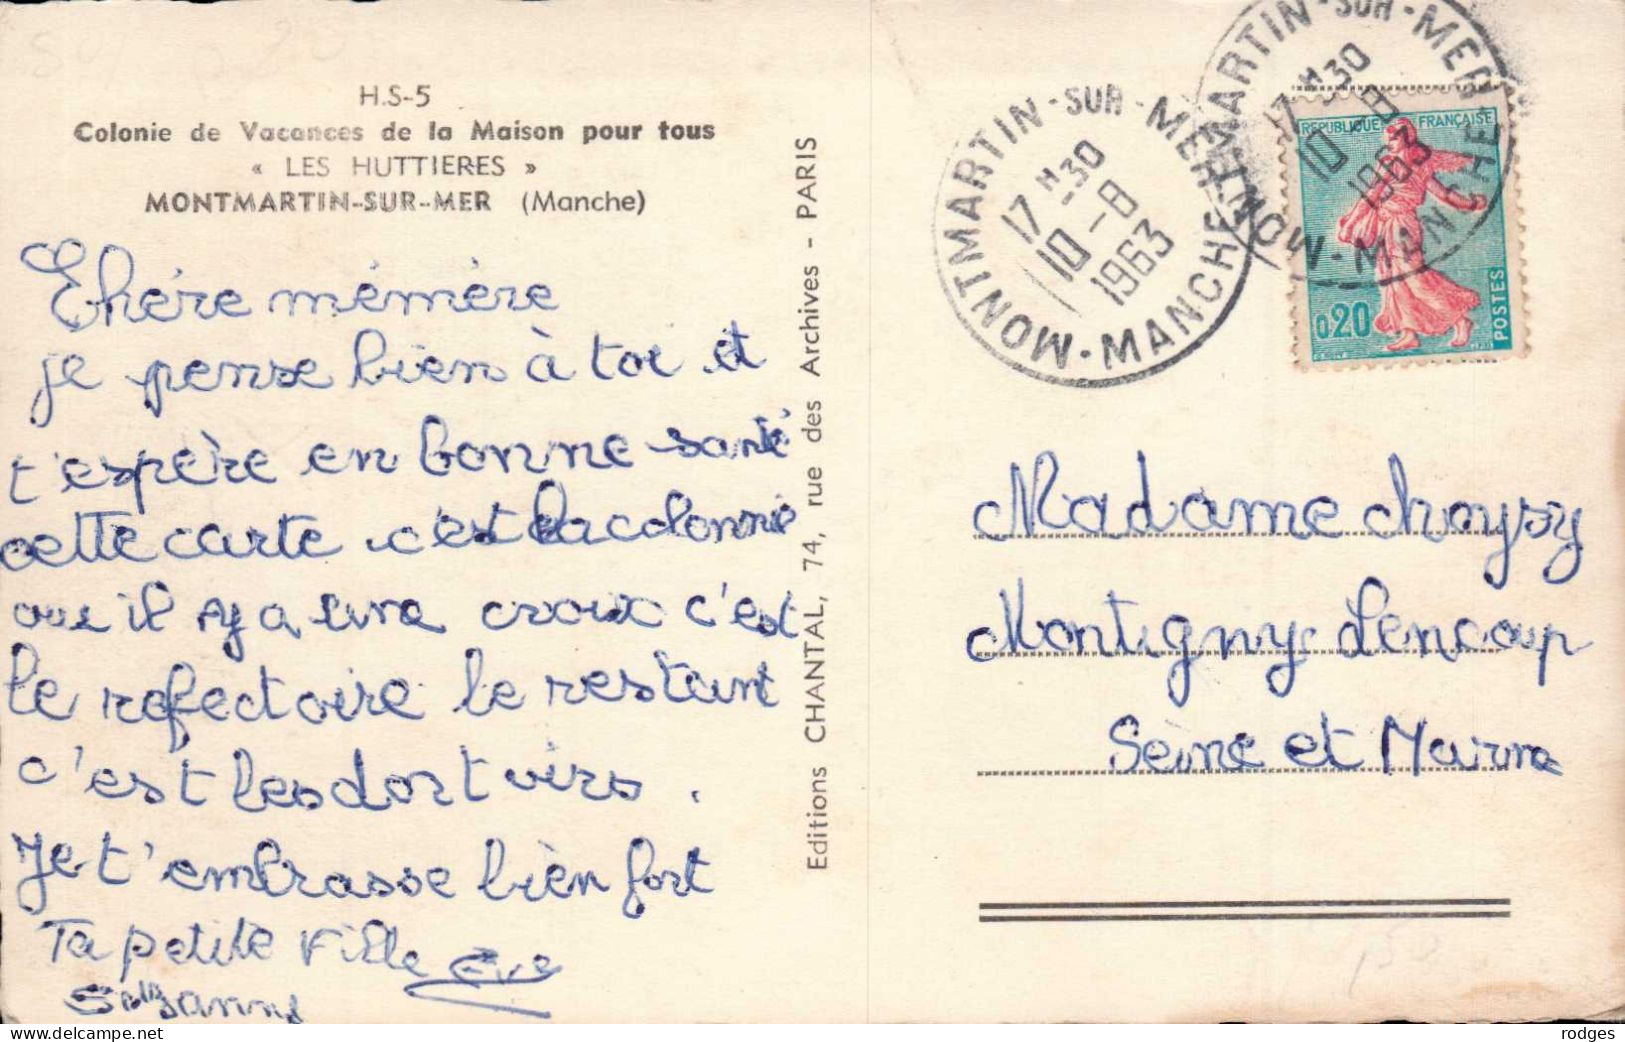 H.S-5
Colonie de Vacances de la Maison pour tous
« LES HUTTIERES »
MONTMARTIN-SUR-MER (Manche)
Chére mémére
je pense bien à toi et
t'espère en bonne santé
cette carte c'est la colonnie
ou il y a une croix c'est
le refectoire le restant
c'est les dortoirs.
Je t'embrasse bien fort
Ta petite Fille Eve
Suzanne
Editions CHANTAL, 74, rue des Archives - PARIS
MONTMARTIN-SUR-MER
17H30
10-8
1963
MANCHE
MONTMARTIN-SUR-MER
17H30
10-8
1963
MANCHE
REPUBLIQUE FRANÇAISE
0,20
POSTES
Madame Choysy
Montigny Lencoup
Seine et Marne
rodges
www.delcampe.net